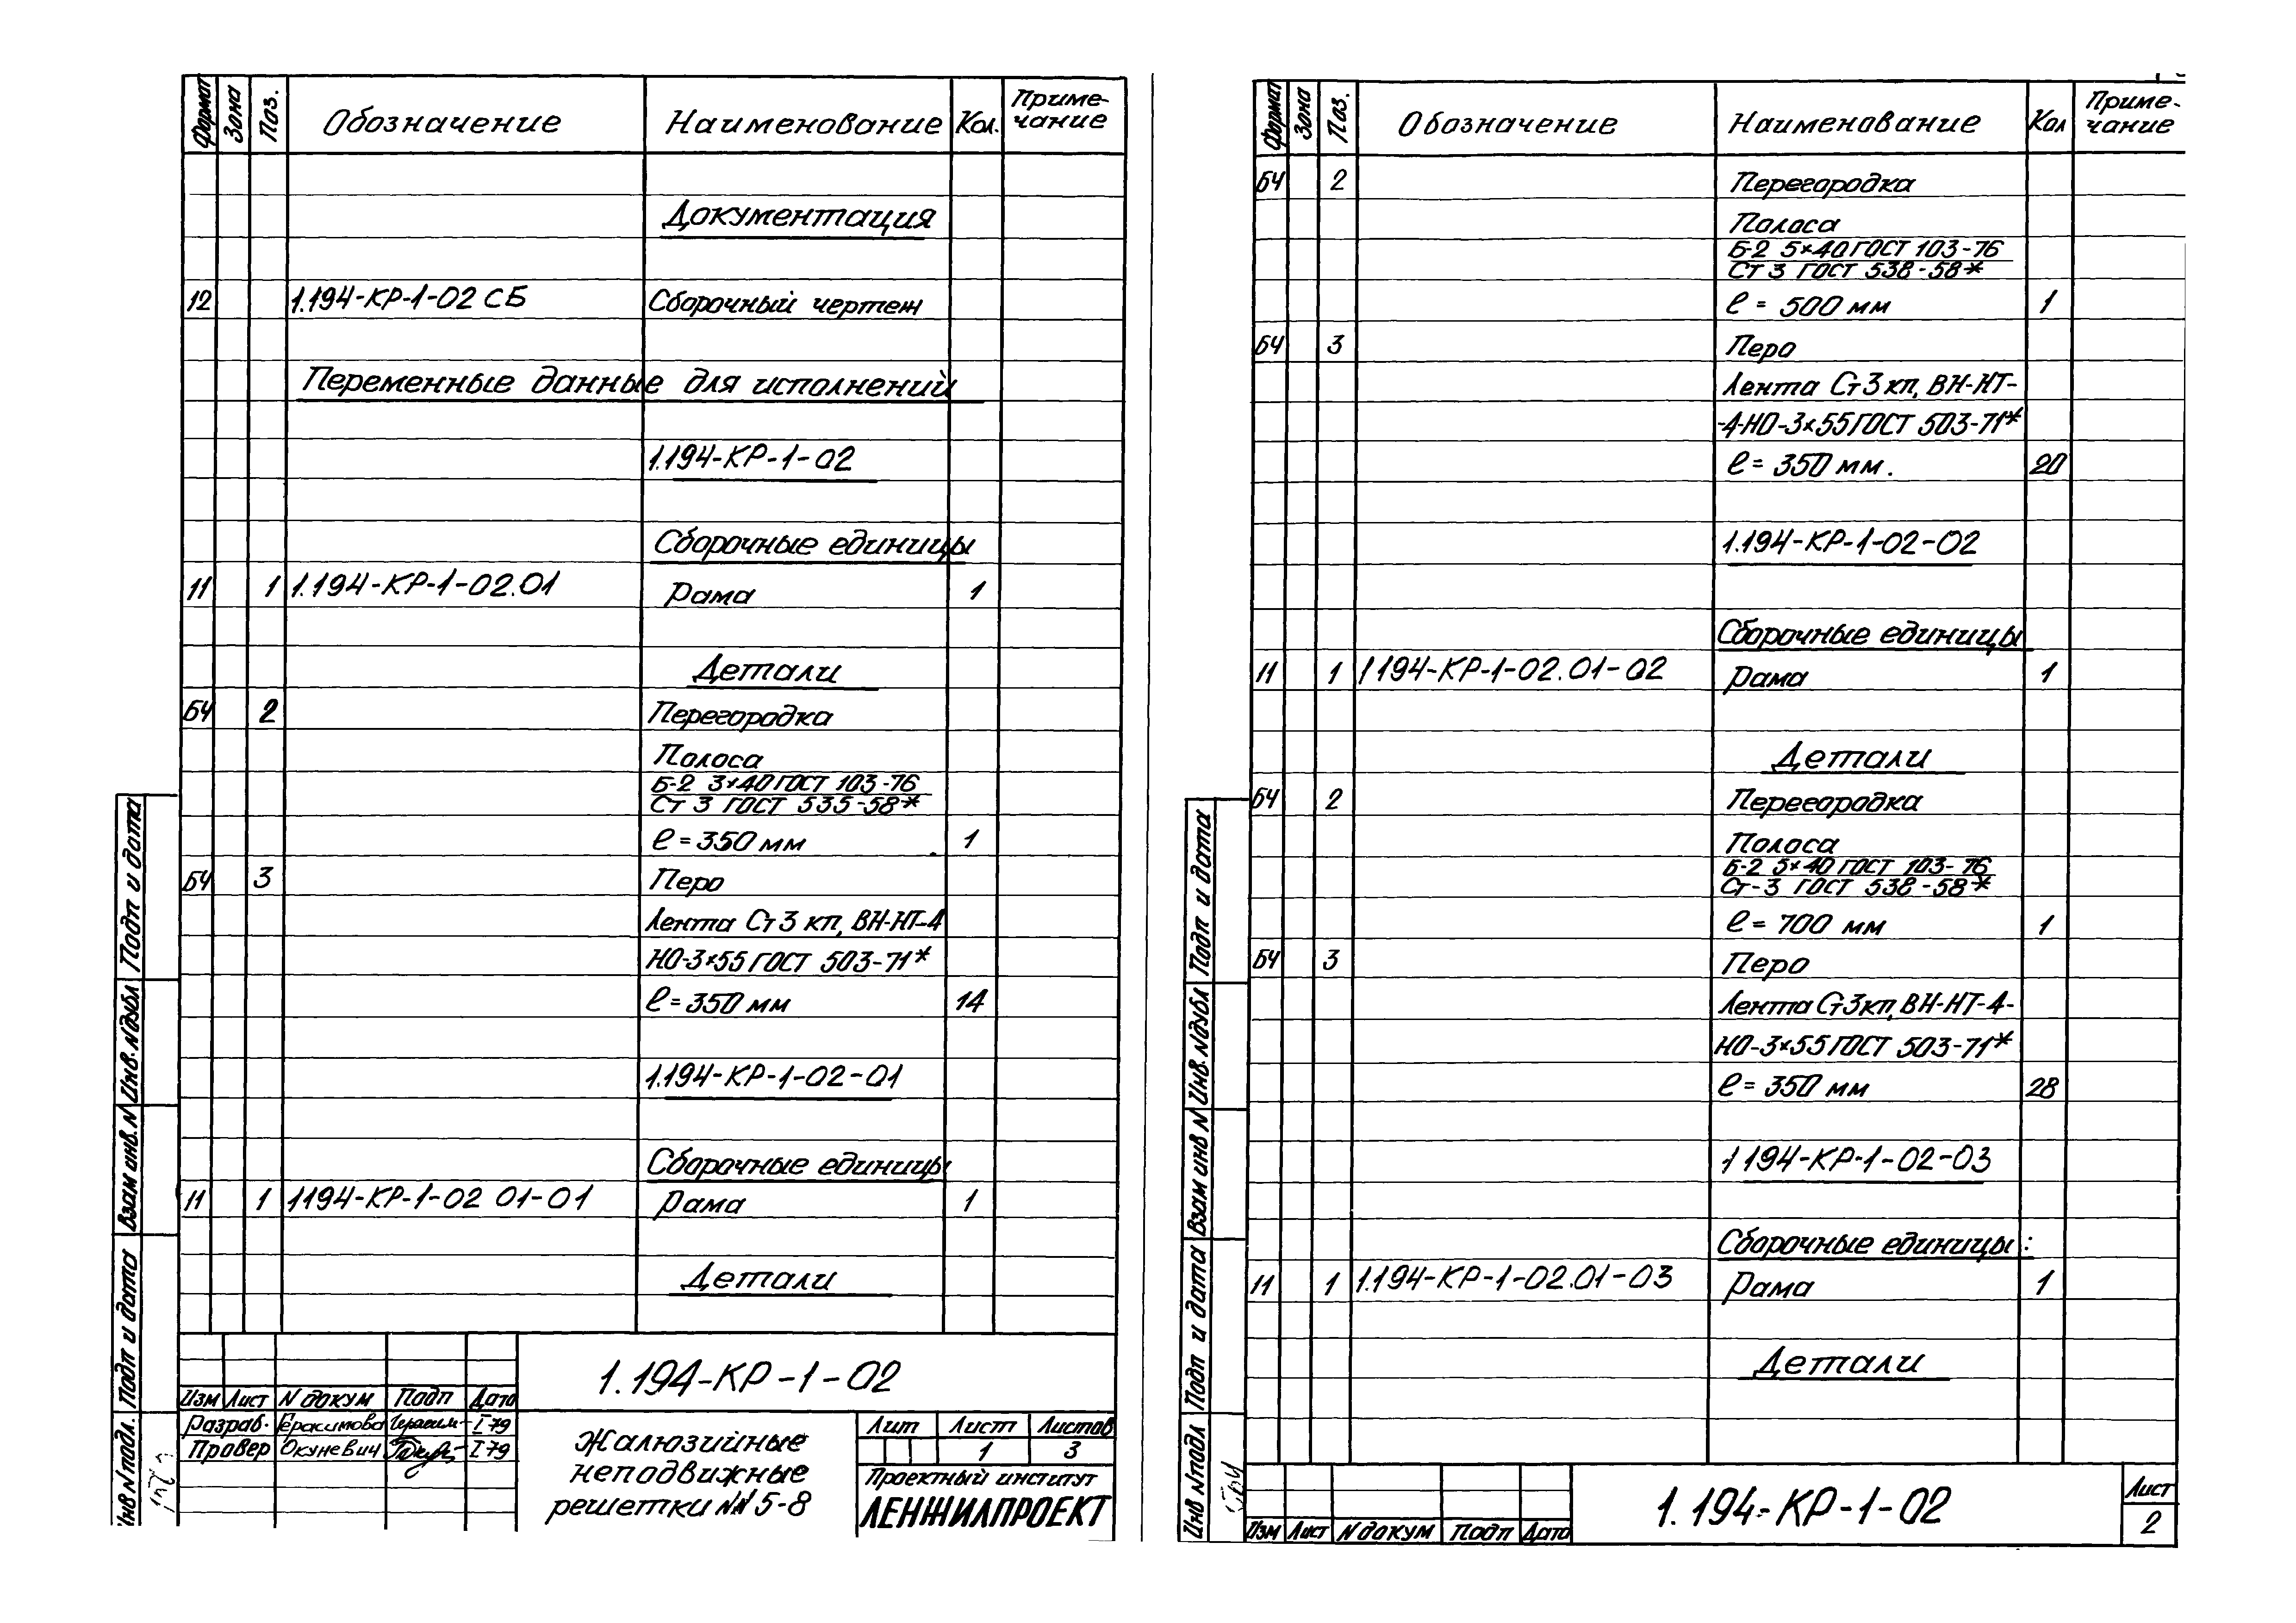 Формат Зона Поз. Обозначение Наименование Кол. Приме-
чание
Документация
12 1.194-КР-1-02 СБ Сборочный чертеж
Переменные данные для исполнений
1.194-КР-1-02
Сборочные единицы
11 1 1.194-КР-1-02.01 Рама 1
Детали
БЧ 2 Перегородка
Полоса
Б-2 3×40 ГОСТ 103-76
Ст 3 ГОСТ 535-58*
ℓ = 350 мм 1
БЧ 3 Перо
Лента Ст 3 кп, ВН-НТ-4
НО-3×55 ГОСТ 503-71*
ℓ = 350 мм 14
1.194-КР-1-02-01
Сборочные единицы
11 1 1194-КР-1-02 01-01 Рама 1
Детали
1.194-КР-1-02
Изм Лист N докум Подп Дата
Разраб. Герасимова I 79
Провер Окуневич I 79
Жалюзийные
неподвижные
решетки NN 5-8
Лит Лист Листов
1 3
Проектный институт
ЛЕНЖИЛПРОЕКТ
Подп и дата
Инв. N дубл
Взам инв. N
Подп и дата
Инв N подл.
Формат Зона Поз. Обозначение Наименование Кол Приме-
чание
БЧ 2 Перегородка
Полоса
Б-2 5×40 ГОСТ 103-76
Ст 3 ГОСТ 538-58*
ℓ = 500 мм 1
БЧ 3 Перо
Лента Ст 3 кп, ВН-НТ-
-4-НО-3×55 ГОСТ 503-71*
ℓ = 350 мм. 20
1.194-КР-1-02-02
Сборочные единицы
11 1 1 194-КР-1-02.01-02 Рама 1
Детали
БЧ 2 Перегородка
Полоса
Б-2 5×40 ГОСТ 103-76
Ст-3 ГОСТ 538-58*
ℓ = 700 мм 1
БЧ 3 Перо
Лента Ст 3 кп, ВН-НТ-4-
НО-3×55 ГОСТ 503-71*
ℓ = 350 мм 28
1 194-КР-1-02-03
Сборочные единицы:
11 1 1.194-КР-1-02.01-03 Рама 1
Детали
Изм Лист N докум Подп Дата
1.194-КР-1-02
Лист
2
Подп и дата
Инв. N дубл
Взам инв N
Подп и дата
Инв N подл